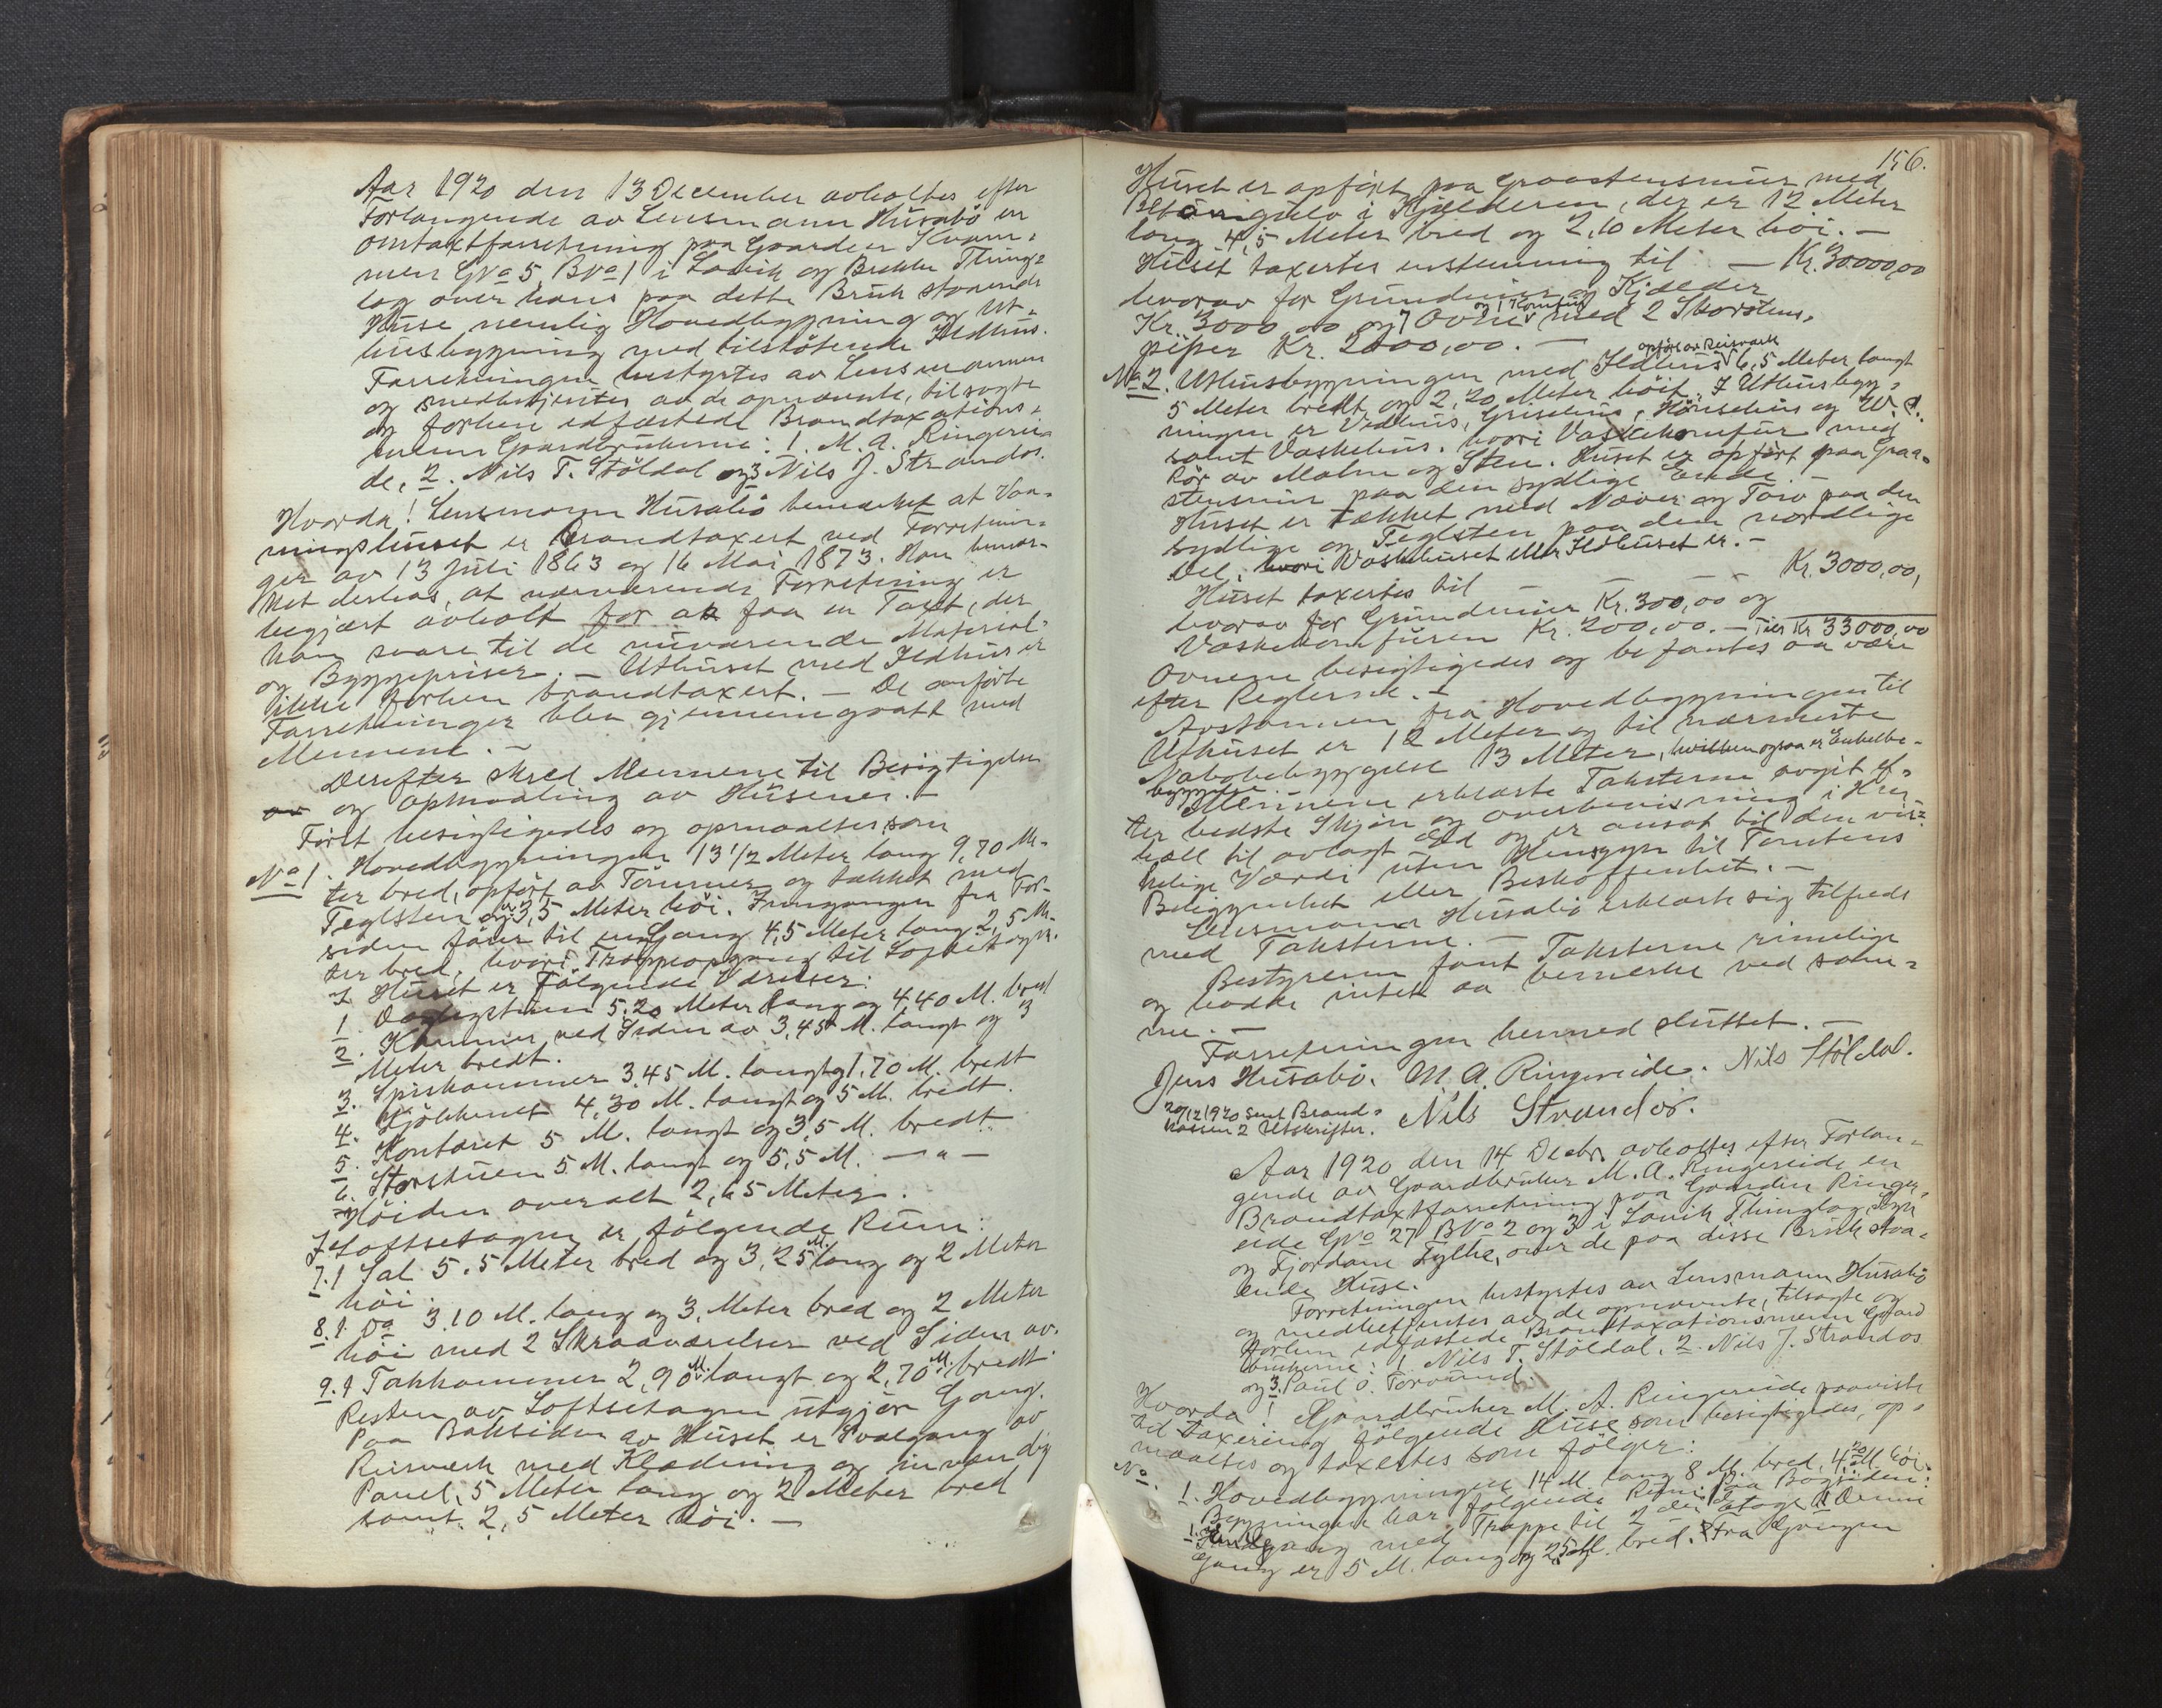 Aar 1920 den 13 December avholtes efter
Forlangende av Lensmann Husabö en
omtaxtforretning paa Gaarden Kvam-
men GNo 5 BNo 1 i Lavik og Brekke Thing-
lag over hans paa dette Bruk staaende
Huse nemlig Hovedbygning og Ut-
husbygning med tilstötende Ildhus.
Forretningen bestyrtes av Lensmannen
og medbetjentes av de opnævnte, tilsagte
og forhen edfæstede Brandtaxations-
mænn Gaardbrukerne: 1. M. A. Ringerei-
de, 2. Nils T. Stöldal og 3 Nils J. Strandos.
Hvorda! Lensmann Husabö bemærket at Vaa-
ningshuset er Brandtaxert ved Forretnin-
ger av 13 Juli 1863 og 16 Mai 1873. Han bemær-
ket derhos, at nærværende Forretning er
begjært avholt for at faa en Taxt, der
kan svare til de nuværende Material-
og Byggepriser. — Uthuset med Ildhus er
ikke forhen brandtaxert. — De anförte
Forretninger blev gjennemgaatt med
Mennene. —
Derefter skred Mennene til Besigtigelse
og Opmaaling av Husene. —
Först besigtigedes og opmaaltes som
No 1. Hovedbygningen 13 1/2 Meter lang 9,70 Me-
ter bred, opfört av Tömmer og tækket med
Teglsten og 3,5 Meter höi. Inngangen fra For-
siden förer til en Gang 4,5 Meter lang 2,5 Me-
ter bred, hvori Trappeopgang til Loftsetagen.
I Huset er fölgende Værelser:
1 Daglistuen 5.20 Meter lang og 4,40 M. bred
2. Kammer ved Siden av 3,45 M. langt og 3
Meter bredt.
3. Spiskammer 3,45 M. langt og 1,70 M. bredt
4. Kjökkenet 4,30 M. langt og 5 M. bredt.
5. Kontoret 5 M. langt og 3,5 M. bredt.
6. Storstuen 5 M. langt og 5,5 M. —"—
Höiden overalt 2,65 Meter.
I Loftsetagen er fölgende Rum:
7. 1 Sal 5.5 Meter bred og 3,25 M. lang og 2 Meter
höi.
8. 1 Do 3.10 M. lang og 3. Meter bred og 2 Meter
höi med 2 Skraaværelser ved Siden av.
9. 1 Takkammer 2,90 M. langt og 2,70 M. bredt.
Resten av Loftsetagen utgjör Gang.
Paa Baksiden av Huset er Svalgang av
Reisverk med Klædning og innvendig
Panel, 5 Meter lang og 2 Meter bred
samt 2,5 Meter höi. —
156.
Huset er opfört paa Graastensmur med
gulv i Kjælderen, der er 12 Meter
lang 4,5 Meter bred og 2,10 Meter höi. —
Huset taxertes enstemmig til — Kr. 30000,00
hvorav for Grundmur og Kjælder
Kr. 3000,00 og 7 Ovner og 1 Komfur med 2 Skorstens-
piper Kr. 2000,00. —
No 2. Uthusbygningen med Ildhus opfört av Reisverk 6,5 Meter langt
5 Meter bredt og 2,20 Meter höit. I Uthusbyg-
ningen er Vedhus, Grisehus, Hönsehus og W. C.
samt Vaskehus, hvori Vaskekomfur med
Rör av Malm og Sten. Huset er opfört paa Graa-
stensmur paa den sydlige Ende. —
Huset er tækket med Næver og Torv paa den
sydlige og Teglsten paa den nordlige
Del, hvori Vaskehuset eller Ildhuset er. —
Huset taxertes til — — — Kr. 3000,00,
hvorav for Grundmur Kr. 300,00 og
Vaskekomfuren Kr. 200,00. — Tils Kr 33000,00
Ovnene besigtigedes og befantes aa være
efter Reglerne. —
Avstannen fra Hovedbygningen til
Uthuset er 12 Meter og til nærmeste
Nabobebyggelse 13 Meter, hvilken ogsaa er Enkelbe-
byggelse.
Mennene erklærte Taksterne avgit ef-
ter bedste Skjön og overbevisning i Hen-
hold til avlagt Ed og er ansat til den vir-
kelige Værdi uten Hensyn til Tomtens
Beliggenhet eller Beskaffenhet. —
Lensmann Husabö erklærte sig tilfreds
med Taksterne. —
Bestyreren fant Taksterne rimelige
og hadde intet aa bemerke ved sam-
me. —
Forretningen hermed sluttet. —
Jens Husabö. M. A. Ringereide. Nils Stöldal.
20/12 1920 sent Brand-
kassen 2 Utskrifter. Nils Strandos.
Aar 1920 den 14 Decbr. avholtes efter Forlan-
gende av Gaardbruker M. A. Ringereide en
Brandtaxtforretning paa Gaarden Ringer-
eide GNo 27 BNo 2 og 3 i Lavik Thinglag, Sogn
og Fjordane Fylke, over de paa disse Bruk staa-
ende Huse.
Forretningen bestyrtes av Lensmann Husabö
og medbetjentes av de opnævnte, tilsagte og
forhen edfæstede Brandtaxationsmenn Gaard
brukerne: 1. Nils T. Stöldal. 2. Nils J. Strandos
og 3. Paul O. Torvund.
Hvorda! Gaardbruker M. A. Ringereide paaviste
til taxering fölgende Huse som besigtigedes, op-
maaltes og taxertes som fölger:
No. 1. Hovedbygningen 14 M. lang 8 M. bred, 4,20 M. höi.
Bygningen har fölgende Rum: paa Bagsiden:
1. Inngang med Trappe til 2den Etage. Denne
Gang er 5 M. lang og 2,5 M. bred. Fra Gangen